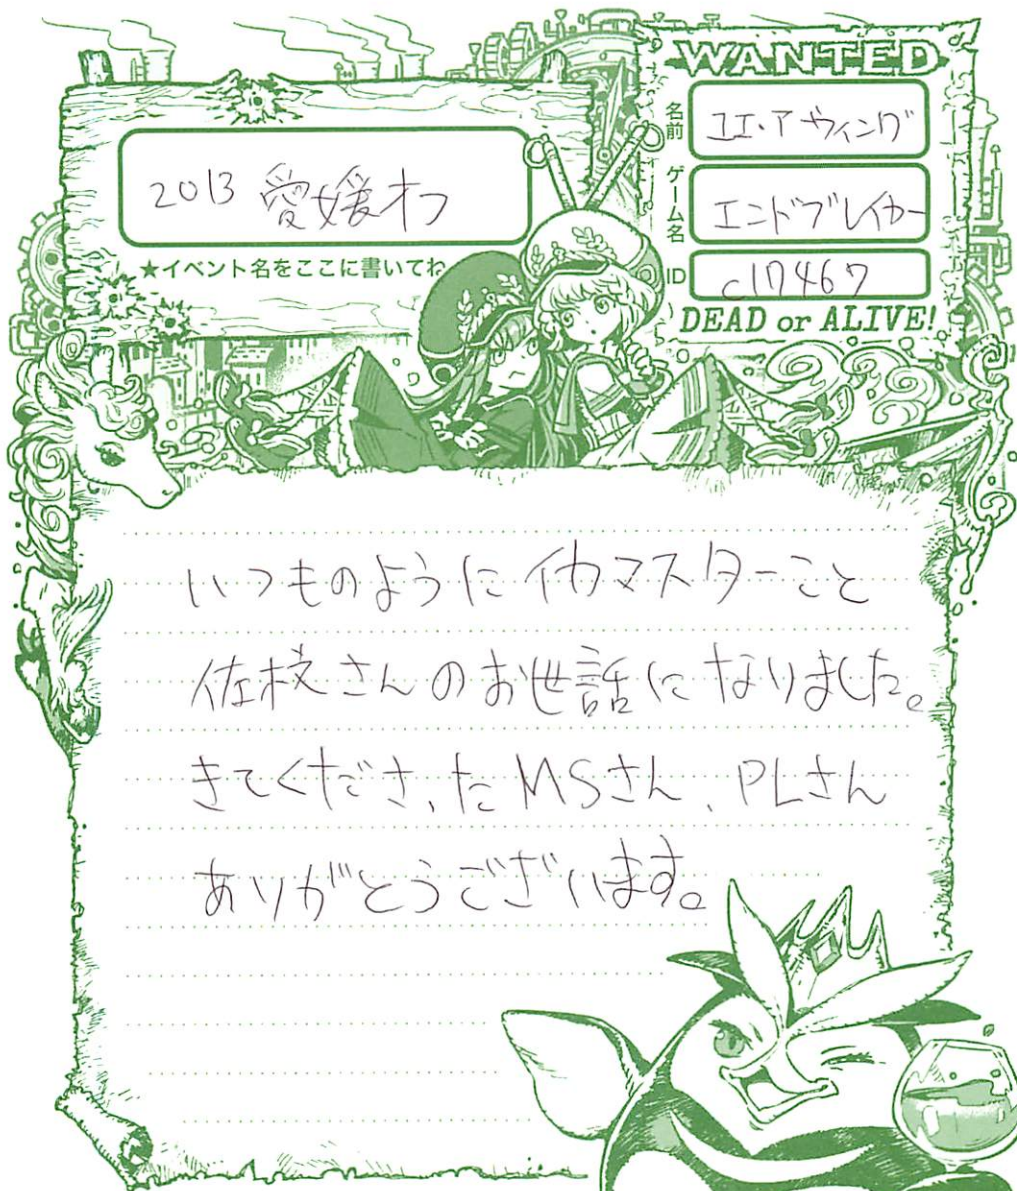 2013 愛媛オフ
★イベント名をここに書いてね
WANTED
名前 ユエ・アウィング
ゲーム名 エンドブレイカー
ID c17467
DEAD or ALIVE!
いつものようにイカマスターこと
佐枝さんのお世話になりました。
きてくださった MSさん、PLさん
ありがとうございます。